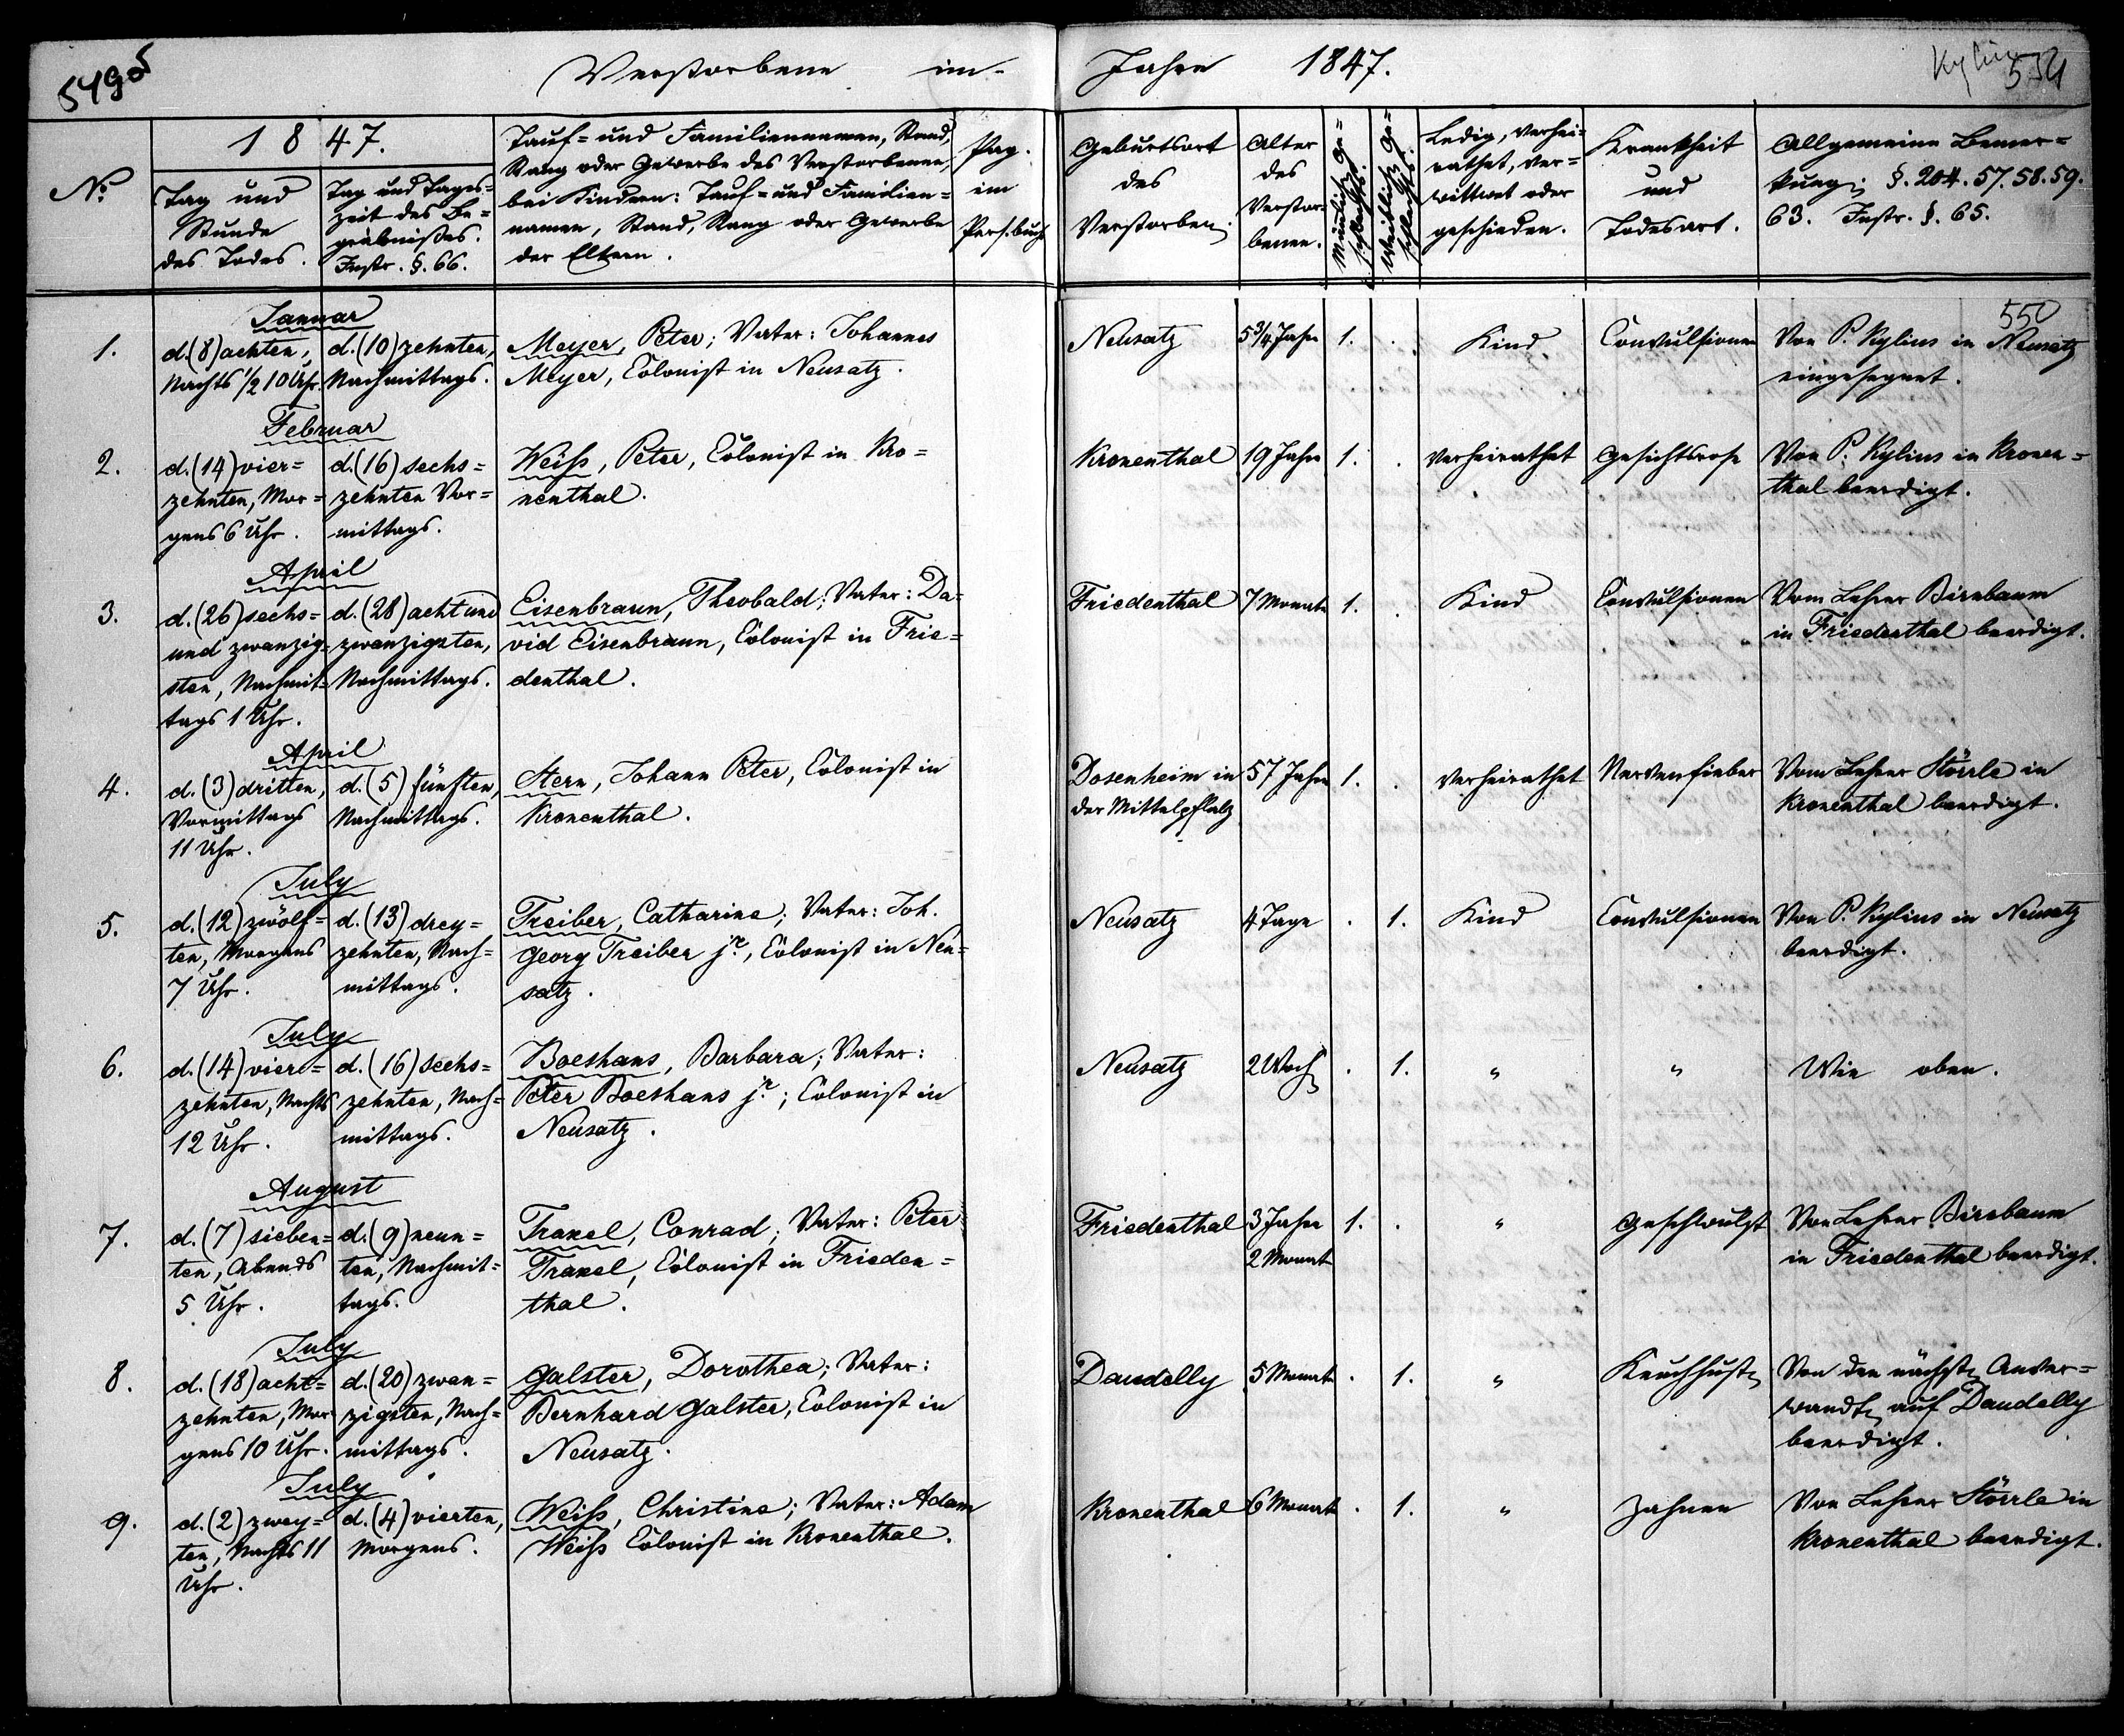 549 об
Verstorbene im Jahre 1847.
Kylius
554
550
No.
1847.
Tag und
Stunde
des Todes.
Tag und Tages=
zeit des Be=
gräbnißes.
Instr. §. 66.
Tauf= und Familiennamen, Stand,
Rang oder Gewerbe des Verstorbenen,
bei Kindern: Tauf= und Familien=
namen, Stand, Rang oder Gewerbe
der Eltern.
Pag.
im
Pers.buch
Geburtsort
des
Verstorben.
Alter
des
Verstor=
benen.
Männliche Ge=
schlechts.
Weibliche Ge=
schlechts.
Ledig, verhei=
rathet, ver=
wittwet oder
geschieden.
Krankheit
und
Todesart.
Allgemeine Bemer=
kung. §. 204. 57. 58. 59.
63. Instr. §. 65.
Januar
1.
d. (8) achten,
Nachts 1/2 10 Uhr.
d. (10) zehnten,
Nachmittags.
Meyer, Peter; Vater: Johannes
Meyer, Colonist in Neusatz.
Neusatz
5 3/4 Jahr
1.
.
Kind
Convulsionen
Von P. Kylius in Neusatz
eingesegnet.
Februar
2.
d. (14) vier=
zehnten, Mor=
gens 6 Uhr.
d. (16) sechs=
zehnten Vor=
mittags.
Weiß, Peter, Colonist in Kro=
nenthal.
Kronenthal
19 Jahr
1.
.
verheirathet
Gesichtsrose
Von P. Kylius in Kronen=
thal beerdigt.
April
3.
d. (26) sechs=
und zwanzig=
sten, Nachmit=
tags 1 Uhr.
d. (28) acht und
zwanzigsten,
Nachmittags.
Eisenbraun, Theobald; Vater: Da=
vid Eisenbraun, Colonist in Frie=
denthal.
Friedenthal
7 Monate
1.
.
Kind
Convulsionen
Vom Lehrer Birnbaum
in Friedenthal beerdigt.
April
4.
d. (3) dritten,
Vormittags
11 Uhr.
d. (5) fünften,
Nachmittags.
Stern, Johann Peter, Colonist in
Kronenthal.
Dosenheim in
der Mittelpflalz
57 Jahre
1.
.
verheirathet
Nervenfieber
Vom Lehrer Störrle in
Kronenthal beerdigt.
July
5.
d. (12) zwölf=
ten, Morgens
7 Uhr.
d. (13) drey=
zehnten, Nach=
mittags.
Treiber, Catharine; Vater: Joh.
Georg Treiber jr., Colonist in Neu=
satz.
Neusatz
4 Tage
.
1.
Kind
Convulsionen
Von P. Kylius in Neusatz
beerdigt.
July
6.
d. (14) vier=
zehnten, Nachts
12 Uhr.
d. (16) sechs=
zehnten, Nach=
mittags.
Boeshans, Barbara; Vater:
Peter Boeshans jr.; Colonist in
Neusatz.
Neusatz
2 Woch
.
1.
"
"
Wie oben.
August
7.
d. (7) sieben=
ten, Abends
5 Uhr.
d. (9) neun=
ten, Nachmit=
tags.
Traxel, Conrad; Vater: Peter
Traxel, Colonist in Frieden=
thal.
Friedenthal
3 Jahr
2 Monat
1.
.
"
Geschwulst
Von Lehrer Birnbaum
in Friedenthal beerdigt.
July
8.
d. (18) acht=
zehnten, Mor=
gens 10 Uhr.
d. (20) zwan=
zigsten, Nach=
mittags.
Galster, Dorothea; Vater:
Bernhard Galster, Colonist in
Neusatz.
Daudelly
5 Monat
.
1.
"
Keuchhusten
Von den nächsten Anver=
wandten auf Daudelly
beerdigt.
July
9.
d. (2) zwey=
ten, Nachts 11
Uhr.
d. (4) vierten,
Morgens.
Weiß, Christine; Vater: Adam
Weiß Colonist in Kronenthal.
Kronenthal
6 Monat
.
1.
"
Zahnen
Von Lehrer Störrle in
Kronenthal beerdigt.